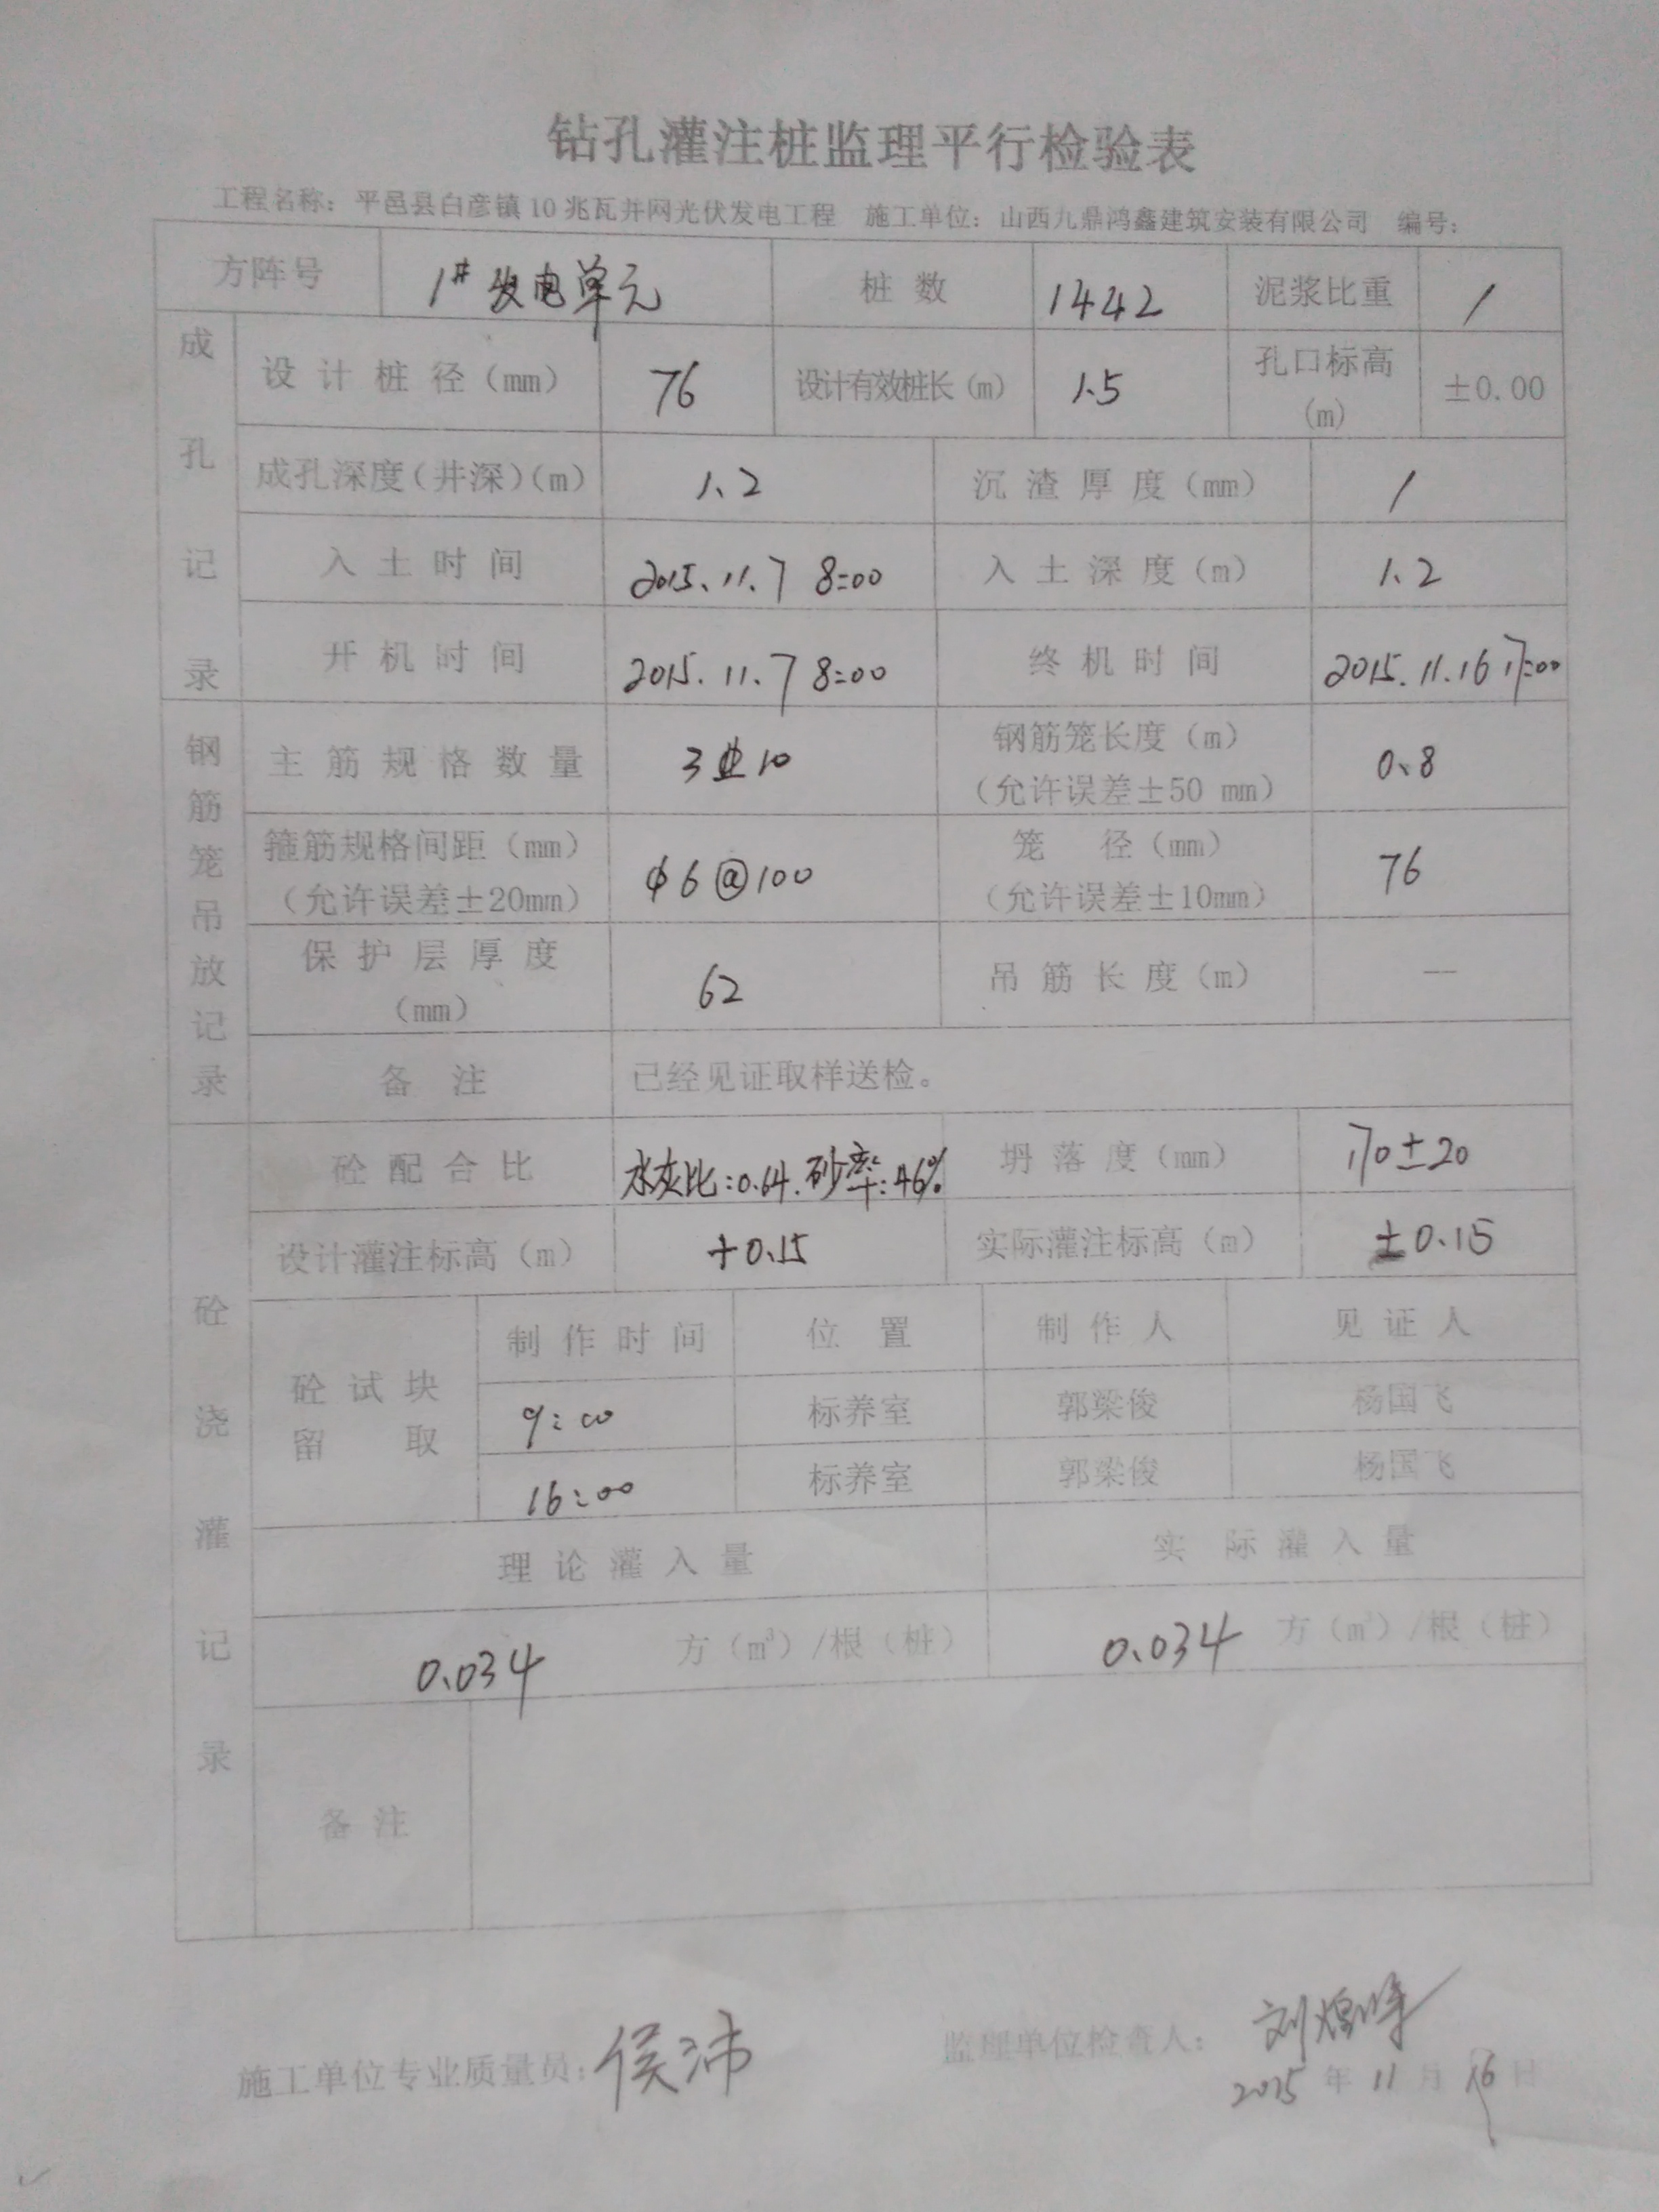 钻孔灌注桩监理平行检验表
工程名称：平邑县白彦镇10兆瓦并网光伏发电工程 施工单位：山西九鼎鸿鑫建筑安装有限公司 编号：
方阵号 1#发电单元 桩 数 1442 泥浆比重 /
成孔记录
设 计 桩 径（mm） 76 设计有效桩长（m） 1.5 孔口标高（m） ±0.00
成孔深度（井深）（m） 1.2 沉 渣 厚 度（mm） /
入 土 时 间 2015.11.7 8:00 入 土 深 度（m） 1.2
开 机 时 间 2015.11.7 8:00 终 机 时 间 2015.11.16 17:00
钢筋笼吊放记录
主 筋 规 格 数 量 3⏀10 钢筋笼长度（m）（允许误差±50 mm） 0.8
箍筋规格间距（mm）（允许误差±20mm） φ6@100 笼 径（mm）（允许误差±10mm） 76
保 护 层 厚 度（mm） 62 吊 筋 长 度（m） —
备 注 已经见证取样送检。
砼浇灌记录
砼 配 合 比 水灰比:0.64.砂率:46% 坍 落 度（mm） 170±20
设计灌注标高（m） +0.15 实际灌注标高（m） ±0.15
砼 试 块 留 取 制 作 时 间 位 置 制 作 人 见 证 人
9:00 标养室 郭梁俊 杨国飞
16:00 标养室 郭梁俊 杨国飞
理 论 灌 入 量 实 际 灌 入 量
0.034 方（m³）/根（桩） 0.034 方（m³）/根（桩）
备 注
施工单位专业质量员：侯沛 监理单位检查人：
2015 年 11 月 16 日